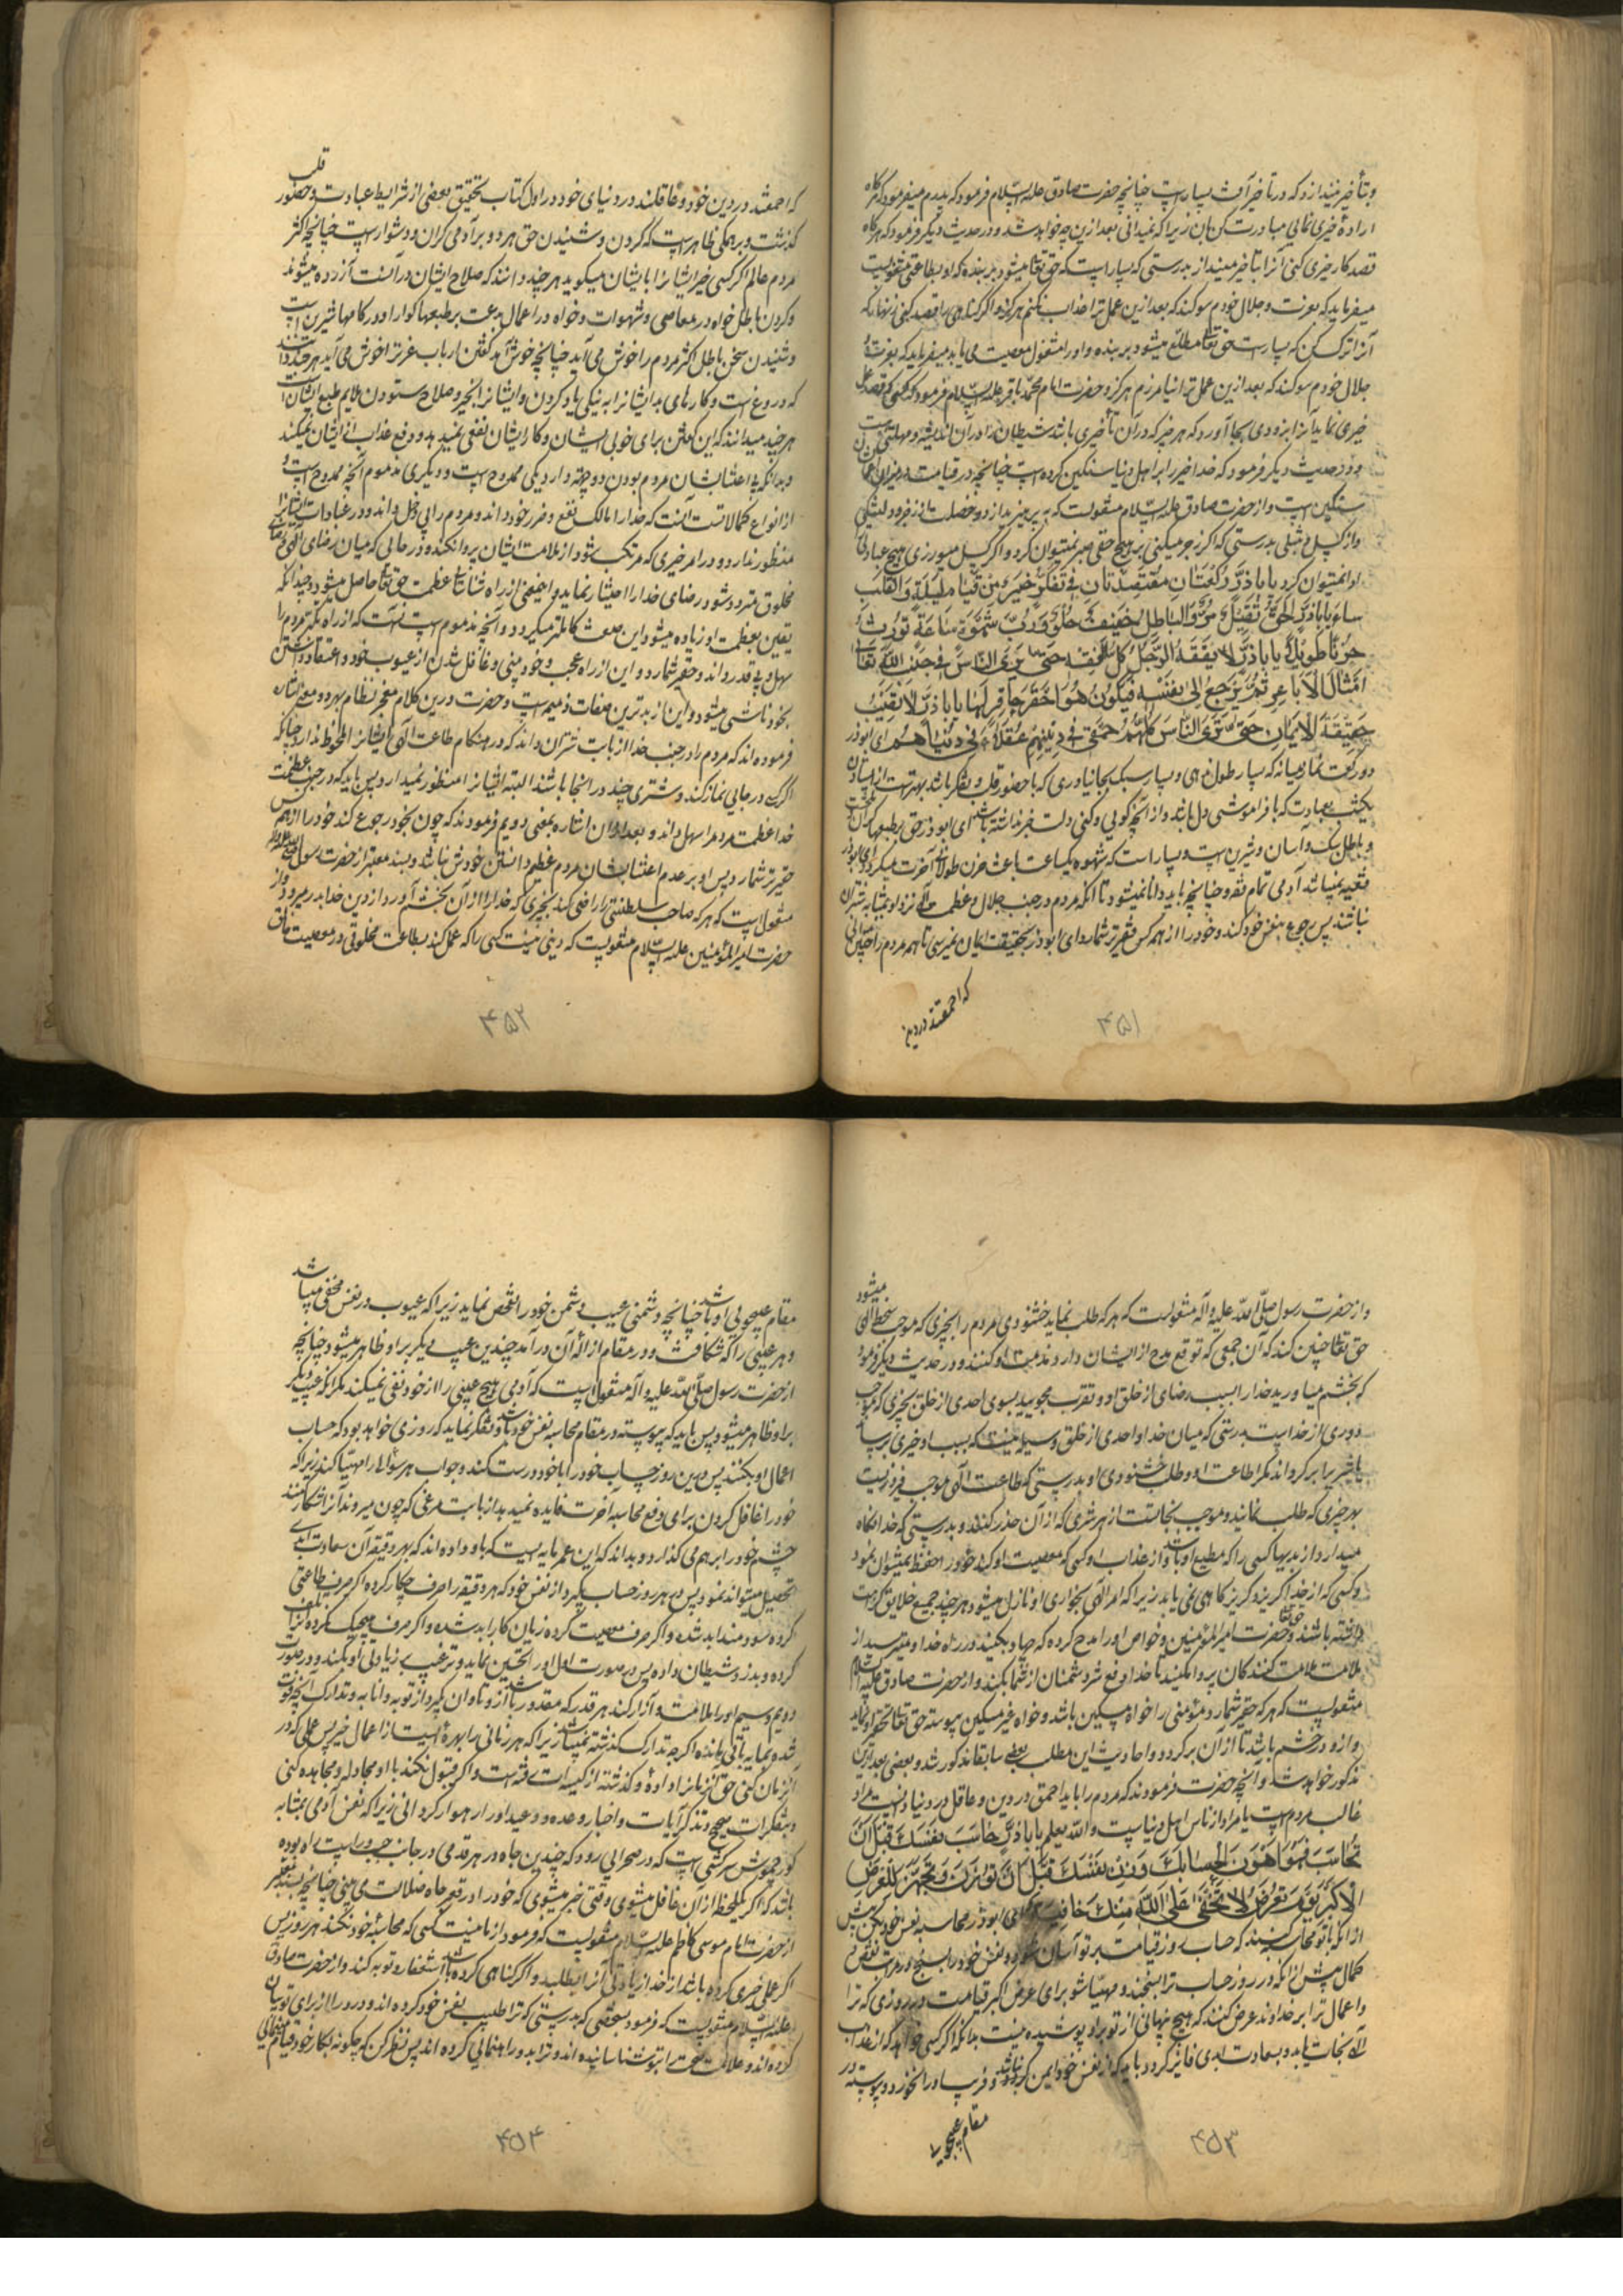 و تأخیر نیندازد که در تأخیر آفت بسیار است چنانچه حضرت صادق علیه السلام فرمود که پدرم میفرمود که هرگاه
اراده خیری نمایی مبادرت کن بآن زیرا که نمیدانی بعد ازین چه خواهد شد و در حدیث دیگر فرمود که هرگاه
قصد کار خیری کنی آنرا بتأخیر مینداز بدرستی که بسیار است که حق تعالی میشود بر بنده که او بطاعتی مشغولست
میفرماید که بعزت و جلال خودم سوگند که بعد ازین عمل ترا عذاب نکنم هرگز و اگر گناهی را قصد کنی زنهار که
آنرا ترک کن که بسیار است حق تعالی مطلع میشود بر بنده و او را مشغول معصیت می یابد میفرماید که بعزت و
جلال خودم سوگند که بعد ازین عمل ترا نیامرزم هرگز و حضرت امام محمد باقر علیه السلام فرمود که کسی که قصد عمل
خیری نماید آنرا بزودی بجا آورد که هر خیر که در آن تأخیری باشد شیطان را در آن اندیشه و مهلتی هست
و در حدیث دیگر فرمود که خدا خیر را بر اهل دنیا سنگین کرده است چنانچه در قیامت در میزان اعمال
سنگین است و از حضرت صادق علیه السلام منقولست که بپرهیز از دو خصلت از زجر و دلتنگی
و از کسل و تنبلی بدرستی که اگر زجر میکنی بر هیچ حقی صبر نمیتوان کرد و اگر کسل میورزی هیچ عبادتی
ادا نمیتوان کرد یا باذر رکعتان مقتصدتان فی تفکر خیر من قیام لیلة و القلب
ساه یا باذر الحق ثقیل مر و الباطل خفیف حلو و رب شهوة ساعة تورث
حزنا طویلا یا باذر لا یفقه الرجل کل الفقه حتی یری الناس فی جنب الله تعالی
امثال الاباعر ثم یرجع الی نفسه فیکون هو احقر حاقر لها یا باذر لا تصیب
حقیقة الایمان حتی تری الناس کلهم حمقی فی دینهم عقلاء فی دنیاهم ای ابوذر
دو رکعت نماز میانه که بسیار طول ندهی و بسیار سبک بجا نیاوری که با حضور قلب و تفکر باشد بهتر است از ایستادن
یکشب بعبادت که با فراموشی دل باشد و از آنچه گویی و کنی دلت خبر نداشته باشد ای ابوذر حق بر طبعها گران
و باطل سبک و آسان و شیرین است و بسیار است که شهوه یکساعت باعث حزن طولانی آخرت میگردد ای ابوذر
فقیه نمیباشد آدمی تمام فقه و چنانچه باید دانا نمیشود تا آنکه مردم در جنب جلال و عظمت حق تعالی نزد او بمثابه شتران
نباشند پس رجوع بنفس خود کند و خود را از همه کس حقیرتر شمارد ای ابوذر بحقیقت ایمان نمیرسی تا همه مردم را چنین دانی
که احمقند در دین
۴۵۱
قلب
که احمقند در دین خود و عاقلند در دنیای خود در اول کتاب تحقیق بعضی از شرایط عبادت و حضور
گذشت و بر همگی ظاهر است که کردن و شنیدن حق هر دو بر آدمی گران و دشوار است چنانچه اکثر
مردم عالم اگر کسی خیر ایشانرا با ایشان میگوید هر چند دانند که صلاح ایشان در آنست آزرده میشوند
و کردن باطل خواه در معاصی و شهوات و خواه در اعمال بدعت بر طبعها گوارا و در کامها شیرین است
و شنیدن سخن باطل اکثر مردم را خوش می آید چنانچه خوش آمد گفتن ارباب عزت را خوش می آید هر چند دانند
که دروغ است و کارهای بد ایشانرا به نیکی یاد کردن و ایشانرا بخیر و صلاح ستودن ملایم طبع ایشانست
هر چند میدانند که این گفتن برای خوبی ایشان و کار ایشان نفعی نمیدهد و دفع عذاب از ایشان نمیکند
و بدانکه بی اعتنا بشان مردم بودن دو جهة دارد یکی ممدوح است و دیگری مذموم آنچه ممدوح است و
از انواع کمالاتست آنست که خدا را مالک نفع و ضرر خود داند و مردم را بی دخل داند و در عبادات ایشانرا
منظور ندارد و در امر خیری که مرتکب شود از ملامت ایشان پروا نکند و در حالی که میان رضای الهی و رضای
مخلوق متردد شود رضای خدا را اختیار نماید و اینمعنی از راه شناخت عظمت حق تعالی حاصل میشود و چندانکه
یقین بعظمت او زیاده میشود این صفت کاملتر میگردد و آنچه مذموم است آنست که از راه تکبر مردم را
سهل و بی قدر داند و حقیر شمارد و این از راه عجب و خودبینی و غافل شدن از عیوب خود و اعتقاد داشتن
بخود ناشی میشود و این از بدترین صفات ذمیمه است و حضرت درین کلام معجز نظام بهر دو معنی اشاره
فرموده اند که مردم را در جنب خدا از بابت شتران داند که در هنگام طاعت الهی ایشانرا ملحوظ ندارد چنانکه
اگر کسی در جایی نماز کند و شتری چند در آنجا باشند البته ایشانرا منظور نمیدارد پس باید که در جنب عظمت
خدا عظمت مردم را سهل داند و بعد از آن اشاره بمعنی دویم فرمودند که چون بخود رجوع کند خود را از همه کس
حقیرتر شمارد پس او بر عدم اعتنا بشان مردم عظیم دانستن خودش نباشد و بسند معتبر از حضرت رسول صلی الله علیه و آله
منقول است که هر که صاحب سلطنتی را راضی کند بچیزی که خدا را از آن بخشم آورد از دین خدا بدر میرود و از
حضرت امیر المؤمنین علیه السلام منقولست که دینی نیست کسی را که عمل کند بطاعت مخلوقی در معصیت خالق
۴۵۲
میشود
و از حضرت رسول صلی الله علیه و آله منقولست که هر که طلب نماید خشنودی مردم را بچیزی که موجب سخط الهی
حق تعالی چنین کند که آن جمعی که توقع مدح از ایشان دارد مذمت او کنند و در حدیث دیگر فرمود
که بخشم میاورید خدا را بسبب رضای از خلق او و تقرب مجویید بسوی احدی از خلق بچیزی که موجب
دوری از خداست بدرستی که میان خدا و احدی از خلق وسیله نیست که بسبب او خیری برساند
یا شری را برگرداند مگر اطاعت او و طلب خشنودی او بدرستی که طاعت الهی موجب فیروزیست
بهر چیزی که طلب نمایند و موجب نجاتست از هر شری که از آن حذر کنند و بدرستی که خدا نگاه
میدارد از بدیها کسی را که مطیع او باشد و از عذاب او کسی که معصیت او کند خود را حفظ نمیتوان نمود
و کسی که از خدا گریزد گریزگاهی نمی یابد زیرا که امر الهی بخواری او نازل میشود هر چند جمیع خلایق کراهت
داشته باشند و حق تعالی حضرت امیر المؤمنین و خواص او را مدح کرده که جهاد میکنند در راه خدا و نمیترسند از
ملامت ملامت کنندگان پروا مکنید تا خدا دفع شر دشمنان از شما بکند و از حضرت صادق علیه السلام
منقولست که هر که حقیر شمارد مؤمنی را خواه مسکین باشد و خواه غیر مسکین پیوسته حق تعالی تحقیر او نماید
و از او در خشم باشد تا از آن برگردد و احادیث این مطلب بعضی سابقا مذکور شد و بعضی بعد ازین
مذکور خواهد شد و آنچه حضرت فرمودند که مردم را باید احمق در دین و عاقل در دنیا دانست مراد
غالب مردم است یا مراد از ناس اهل دنیاست و الله یعلم یا باذر حاسب نفسک قبل ان
تحاسب فهو اهون لحسابک و زن نفسک قبل ان توزن و تجهز للعرض
الاکبر یوم تعرض لا تخفی علی الله منک خافیة ای ابوذر محاسبه نفس خود بکن پیش
از آنکه با تو محاسبه کنند که حساب روز قیامت بر تو آسان شود و نفس خود را بسنج در مراتب نقص و
کمال پیش از آنکه در روز حساب ترا بسنجند و مهیا شو برای عرض اکبر قیامت در روزی که ترا
و اعمال ترا بر خداوند عرض کنند که هیچ پنهانی از تو بر او پوشیده نیست بدانکه اگر کسی خواهد که از عذاب
الهی نجات یابد و بسعادت ابدی فایز گردد باید که از نفس خود ایمن نباشد و فریب او را نخورد و پیوسته در
مقام عیبجویی
۴۵۳
مقام عیبجویی او باشد چنانچه دشمنی عیب دشمن خود را تفحص نماید زیرا که عیوب در نفس مخفی میباشد
و هر عیبی را که شکافت و در مقام ازاله آن در آمد چندین عیب دیگر بر او ظاهر میشود چنانچه
از حضرت رسول صلی الله علیه و آله منقول است که آدمی هیچ عیبی را از خود نفی نمیکند مگر آنکه عیب دیگر
بر او ظاهر میشود پس باید که پیوسته در مقام محاسبه نفس خود باشد و تفکر نماید که روزی خواهد بود که حساب
اعمال او بکنند پس درین روز حساب خود را با خود درست کند و جواب هر سؤال را مهیا کند زیرا که
خود را غافل کردن برای دفع محاسبه آخرت فایده نمیدهد از بابت مرغی که چون میروند که آنرا شکار کنند
چشم خود را بر هم می گذارد و بداند که این عمر مایه ایست که باو داده اند که بهر دقیقه آن سعادت ابدی
تحصیل میتواند نمود پس هر روز حساب بگیرد از نفس خود که هر دقیقه را صرف چکار کرده اگر صرف طاعتی
کرده سودمند ابد شده و اگر صرف معصیت کرده زیان کار ابد شده و اگر صرف هیچیک نکرده آنرا تلف
کرده و بدزد شیطان داده پس در صورت اول او را تحسین نماید و ترغیب بزیادتی آن بکند و در صورت
دویم و سیم او را ملامت و آزار کند هر قدر که مقدور باشد و از او تاوان بگیرد از توبه و انابه و تدارک آنچه فوت
شده بمایه باقی مانده اگر چه تدارک گذشته نمیشود زیرا که هر زمانی را بهره ایست از اعمال خیر پس عملی که در
آنزمان کنی حق آنزمانرا داده و گذشته از کیسه ات رفته است و اگر قبول نکند با او مجادله و مجاهده کنی
و بتفکرات صحیح و تذکر آیات و اخبار و وعده و وعید او را رهوار گردانی زیرا که نفس آدمی بمثابه
کور چموش سرکشی است که در صحرایی رود که چندین چاه در هر قدمی در جانب چپ و راست راه بوده
باشد که اگر یکلحظه از آن غافل میشوی وقتی خبر میشوی که خود را در قعر چاه ضلالت می بینی چنانچه بسند معتبر
از حضرت امام موسی کاظم علیه السلام منقولست که فرمود از ما نیست کسی که محاسبه خود نکند هر روز پس
اگر عمل خیری کرده باشد از خدا زیادتی آنرا بطلبد و اگر گناهی کرده باشد استغفار و توبه کند و از حضرت صادق
علیه السلام منقولست که فرمود بشخصی که بدرستی که ترا طبیب نفس خود کرده اند و درد را از برای تو بیان
کرده اند و علامت صحت را بتو شناسانیده اند و ترا بدوا راهنمائی کرده اند پس نظر کن که چگونه بکار خود قیام مینمائی
۴۵۴